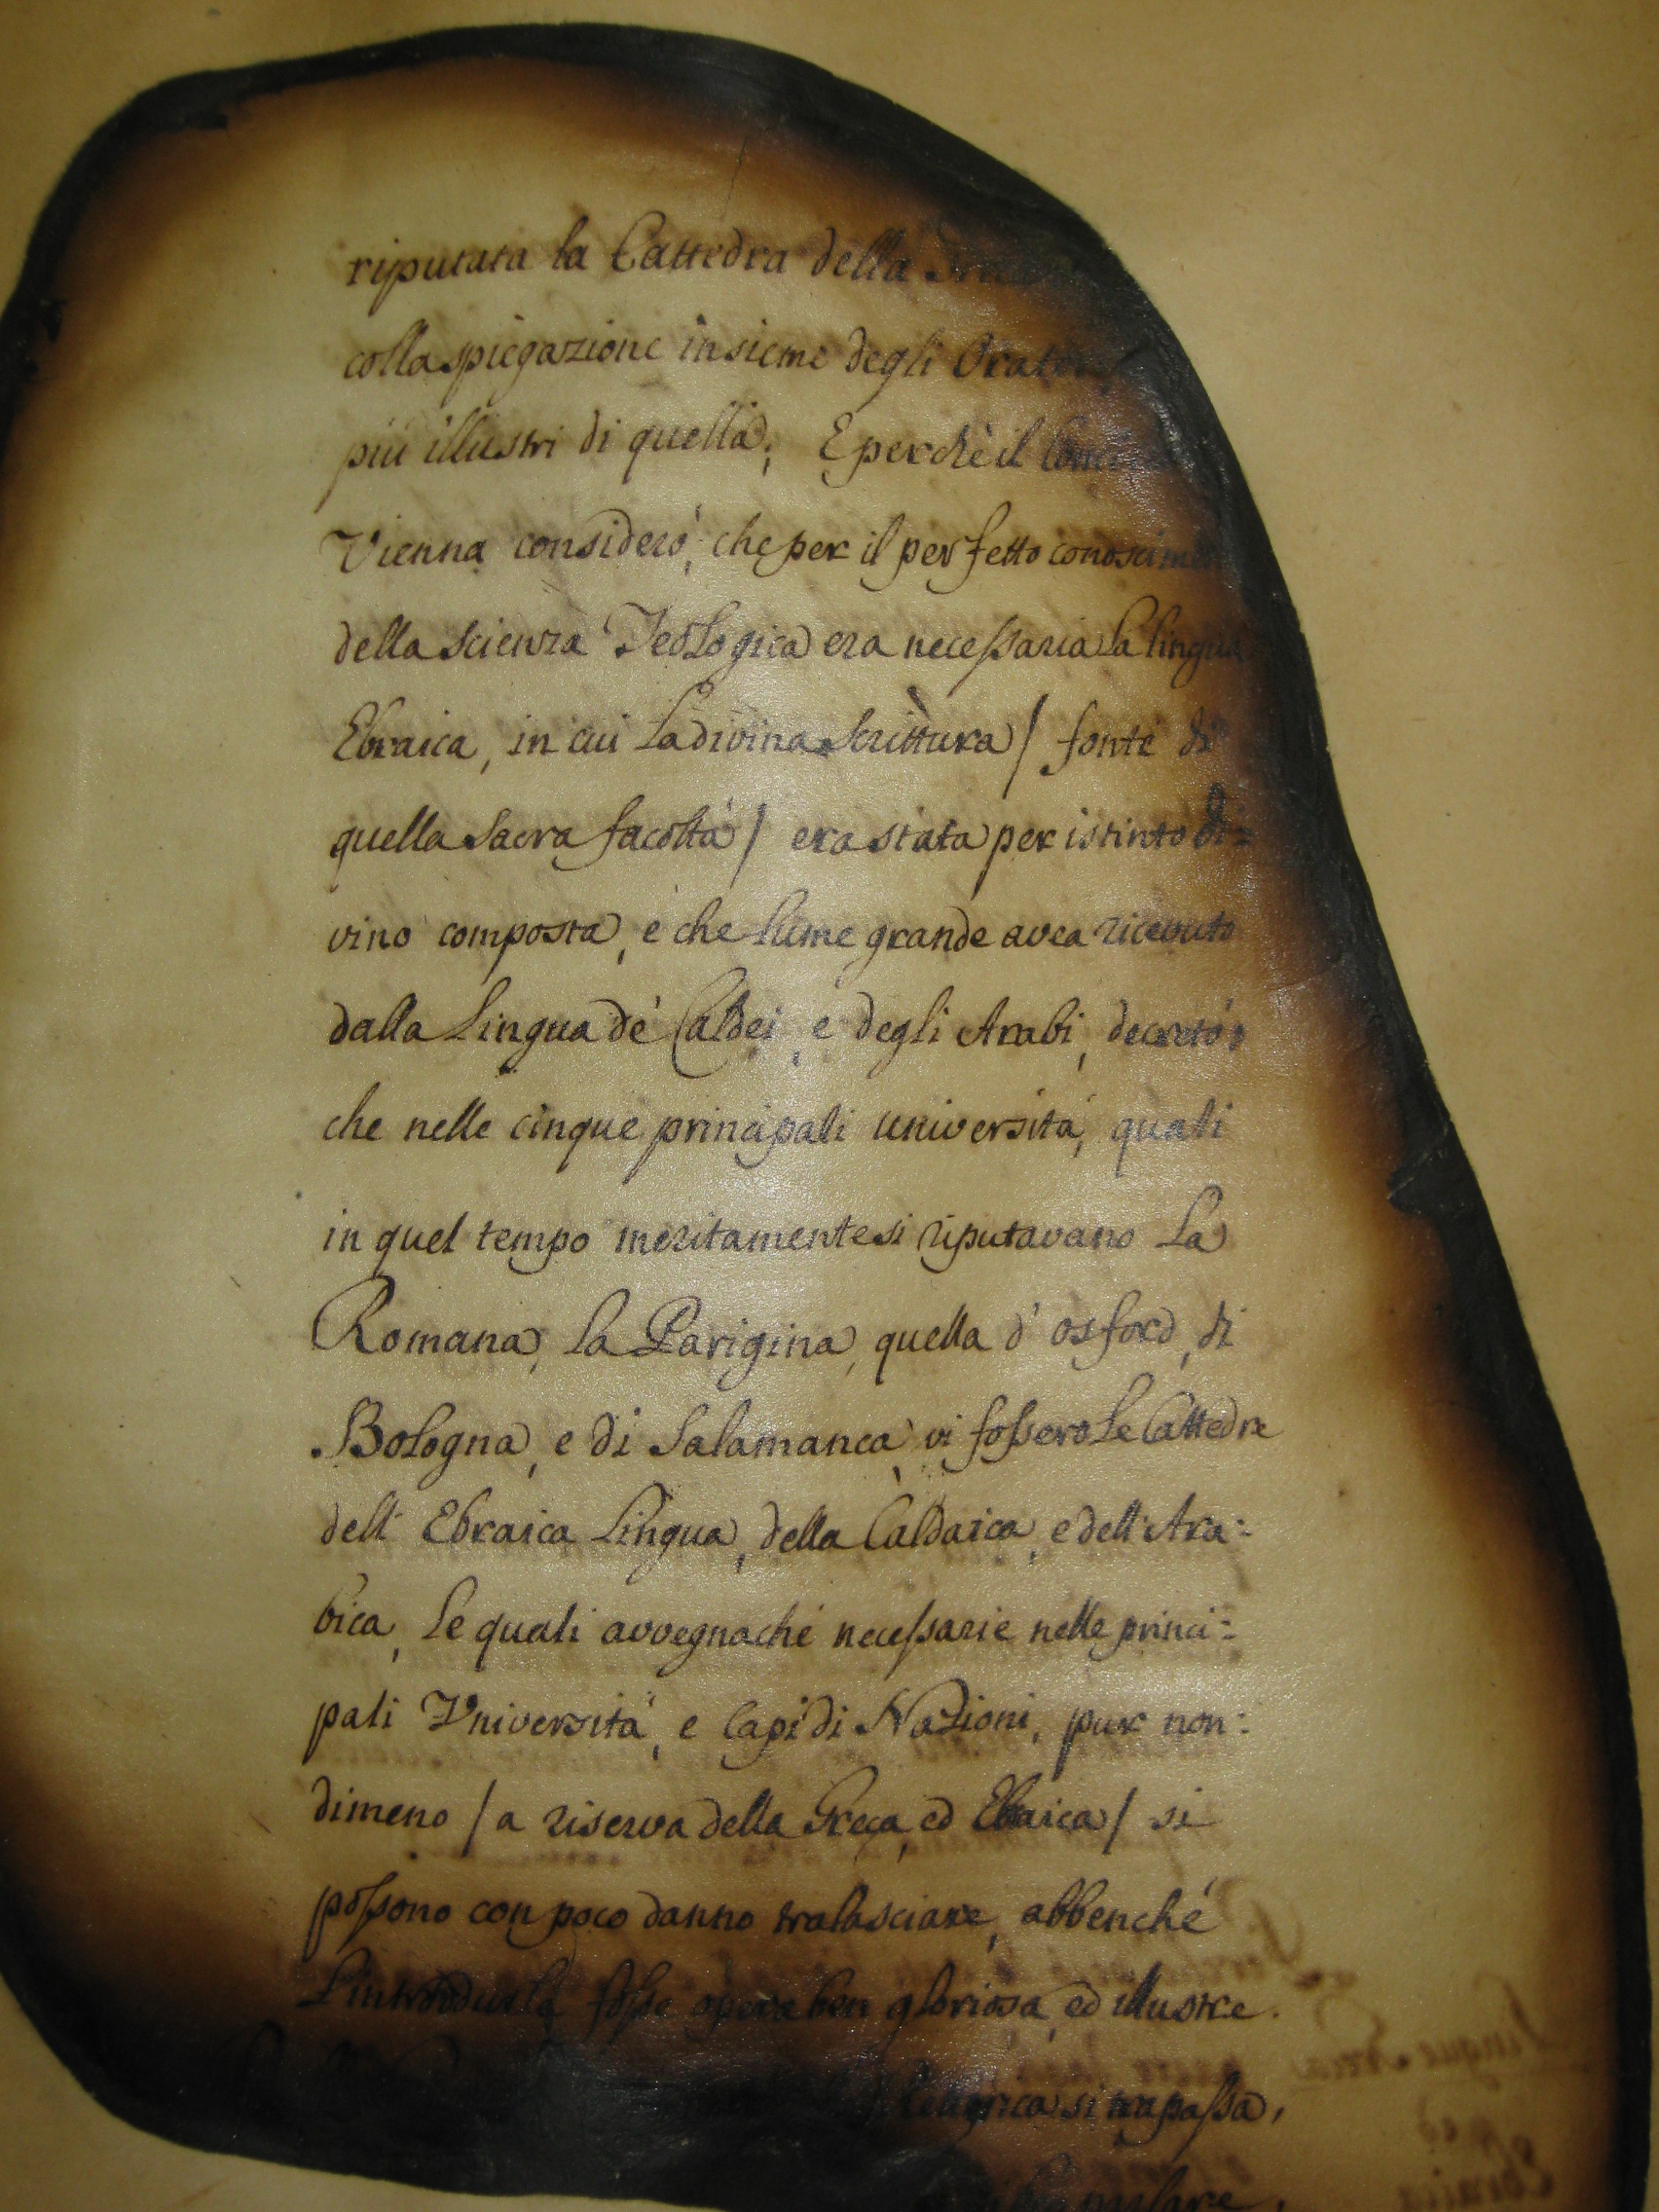 riputata la Cattedra della
colla spiegazione insieme degli Oratori
più illustri di quella; E perchè il
Vienna considerò, che per il perfetto conoscimen
della scienza Teologica era necessaria la lingua
Ebraica, in cui la divina Scrittura / fonte di
quella Sacra facoltà / era stata per istinto di=
vino composta, e che lume grande avea ricevuto
dalla Lingua de' Caldei, e degli Arabi, decretò,
che nelle cinque principali università, quali
in quel tempo meritamente si riputavano La
Romana, la Parigina, quella d'Osford, di
Bologna, e di Salamanca, vi fossero le Cattedre
dell'Ebraica Lingua, della Caldaica, e dell'Ara=
bica, le quali avvegnachè necessarie nelle princi=
pali Università, e Capi di Nazioni, pur non=
dimeno / a riserva della Greca, ed Ebraica / si
possono con poco danno tralasciare, abbenchè
L'introdurla fosse opera ben gloriosa, ed illustre.
si trapassa,